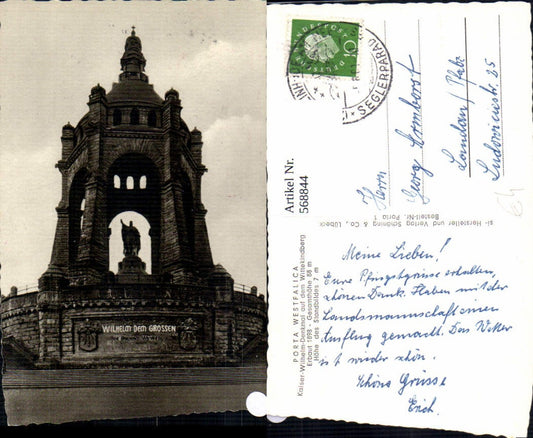 WILHELM DEM GROSSEN
DEUTSCHE BUNDESPOST
10
SEGLERPARAD
Herrn
Georg
Landau / Pfalz
Ludowicistr. 25
Artikel Nr.
568844
Hersteller und Verlag Schöning & Co., Lübeck
Bestell-Nr. Porta 1
PORTA WESTFALICA
Kaiser-Wilhelm-Denkmal auf dem Wittekindberg
Erbaut 1896 - Gesamthöhe 88 m
Höhe des Standbildes 7 m
Meine Lieben!
Eure Pfingstgrüsse erhalten,
schönen Dank. Haben mit der
Landsmannschaft einen
Ausflug gemacht. Das Wetter
ist wieder schön.
Schöne Grüsse
Erich.